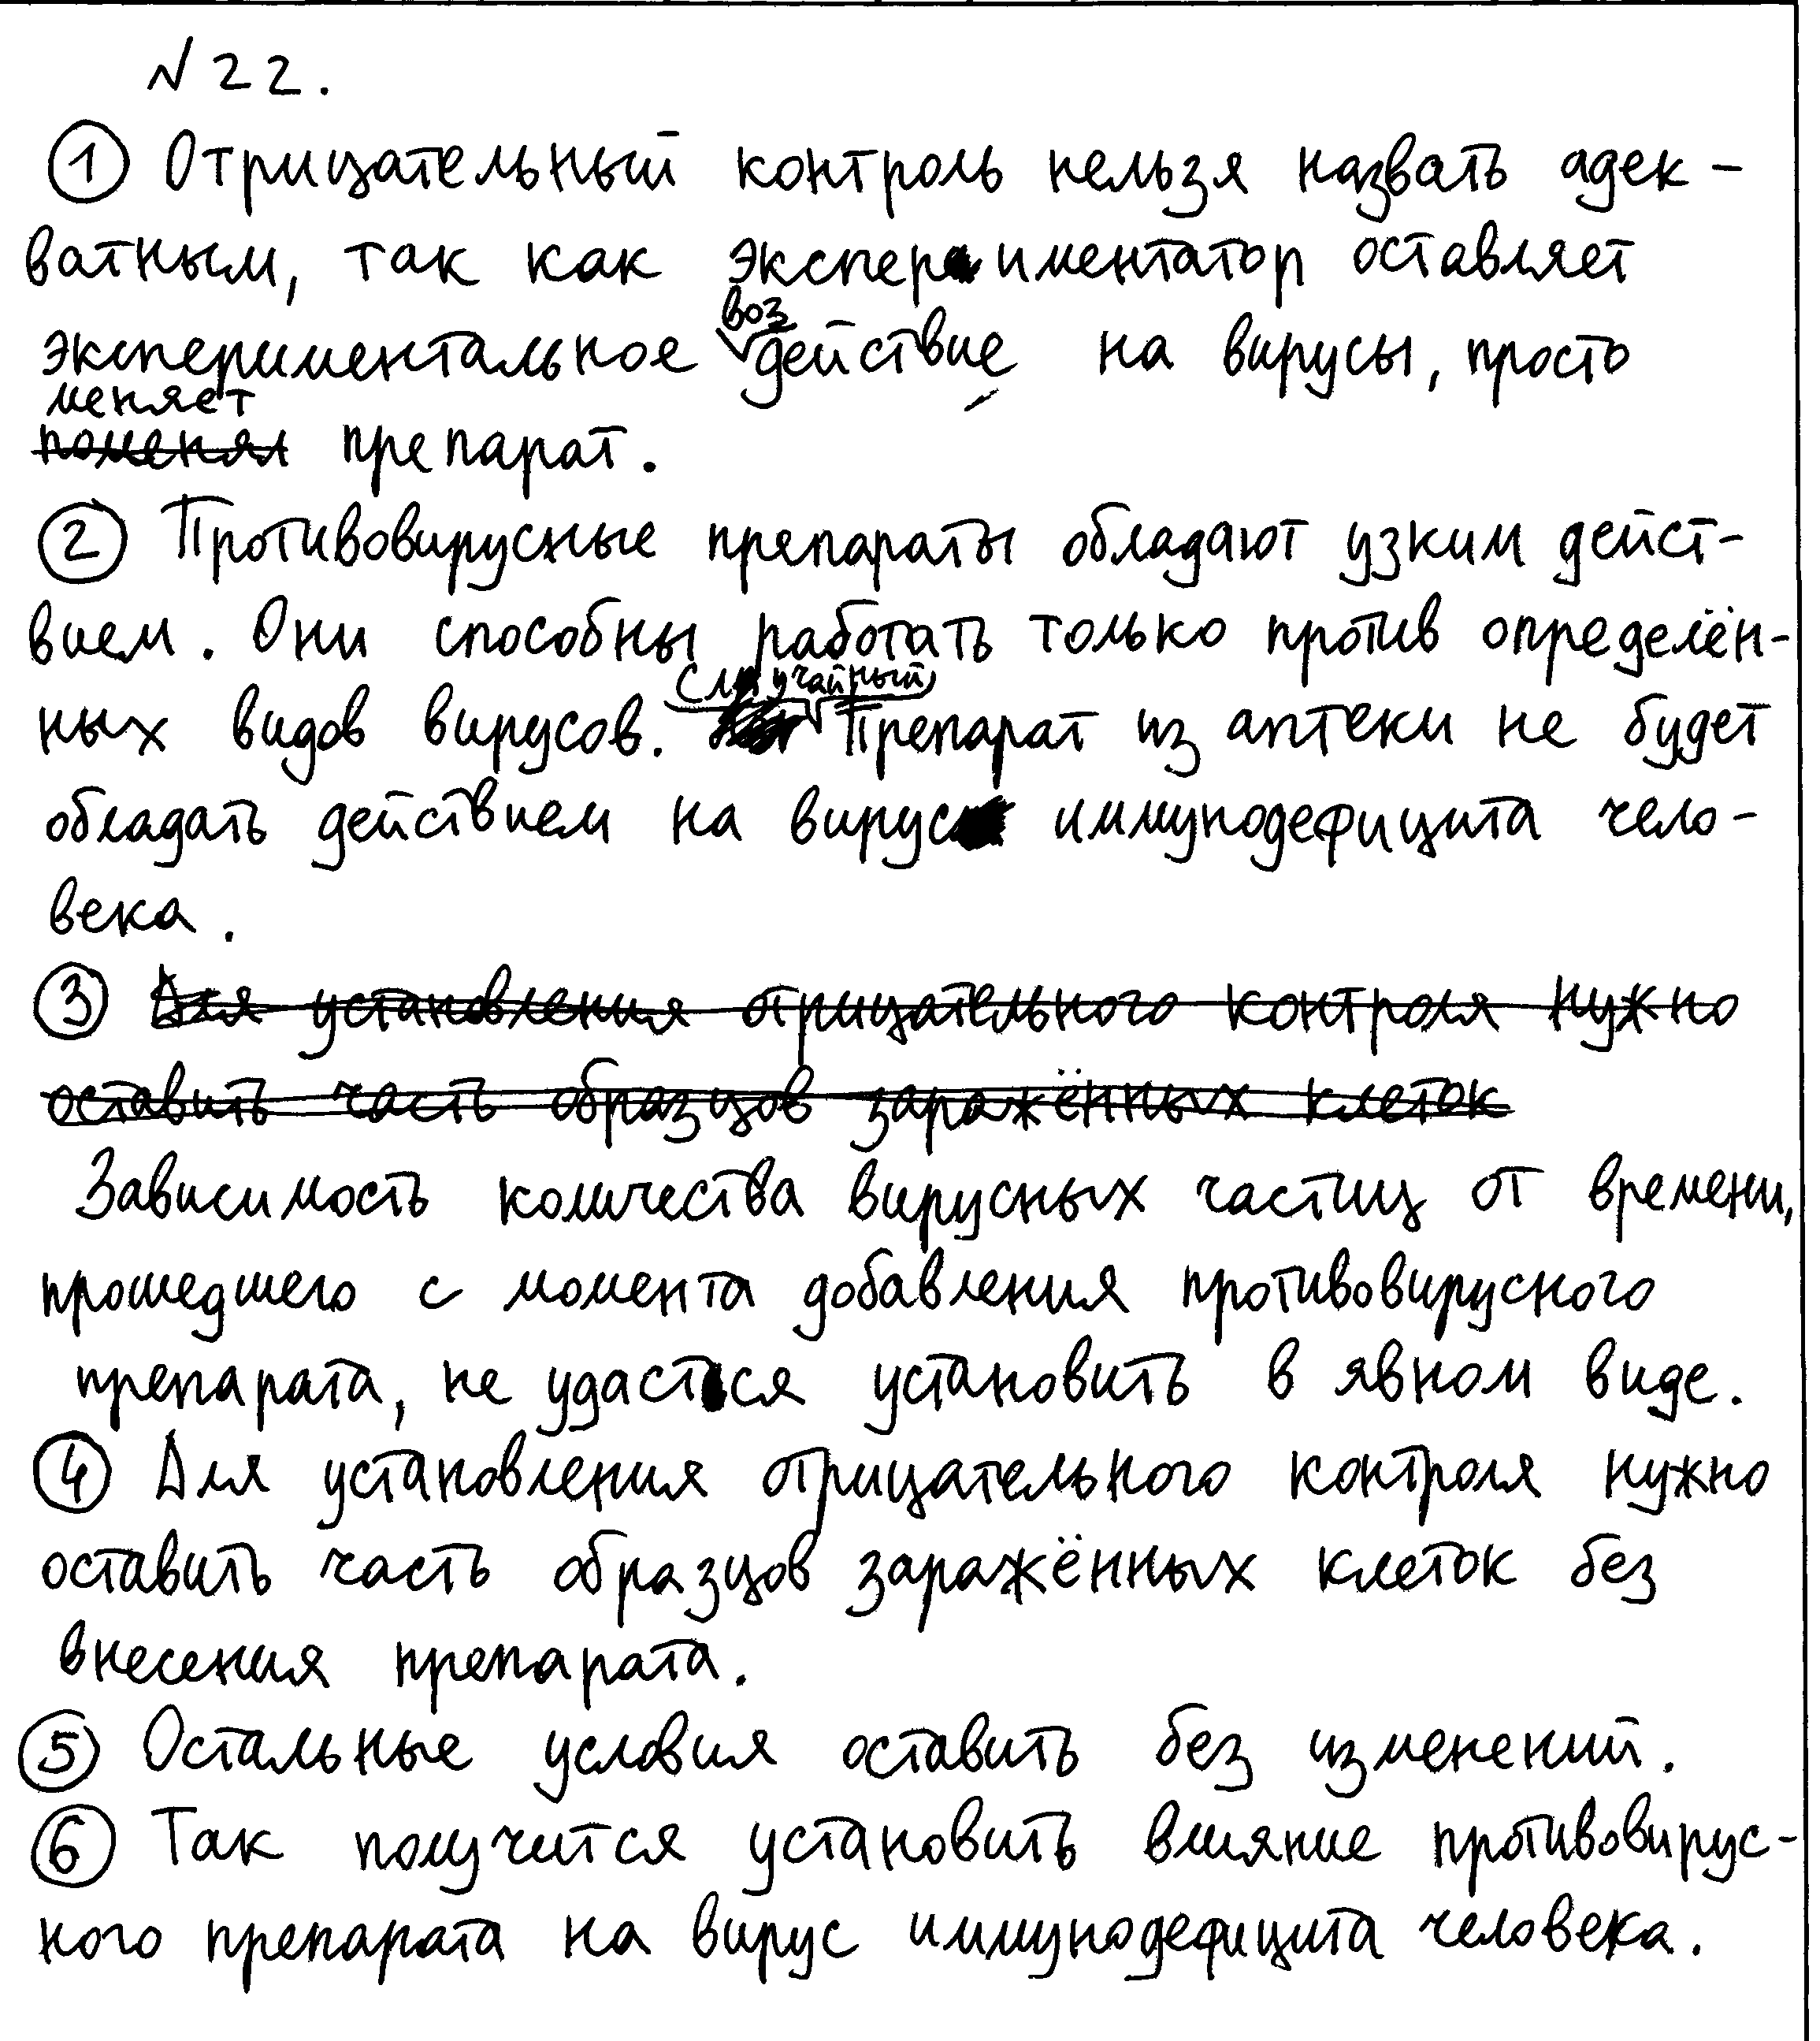 № 22.
① Отрицательный контроль нельзя назвать адек-
ватным, так как экспериментатор оставляет
экспериментальное воздействие на вирусы, просто
меняет
поменял препарат.
② Противовирусные препараты обладают узким дейст-
вием. Они способны работать только против определён-
ных видов вирусов. (случайный) Препарат из аптеки не будет
обладать действием на вирус иммунодефицита чело-
века.
③ Для установления отрицательного контроля нужно
оставить часть образцов заражённых клеток
Зависимость количества вирусных частиц от времени,
прошедшего с момента добавления противовирусного
препарата, не удастся установить в явном виде.
④ Для установления отрицательного контроля нужно
оставить часть образцов заражённых клеток без
внесения препарата.
⑤ Остальные условия оставить без изменений.
⑥ Так получится установить влияние противовирус-
ного препарата на вирус иммунодефицита человека.